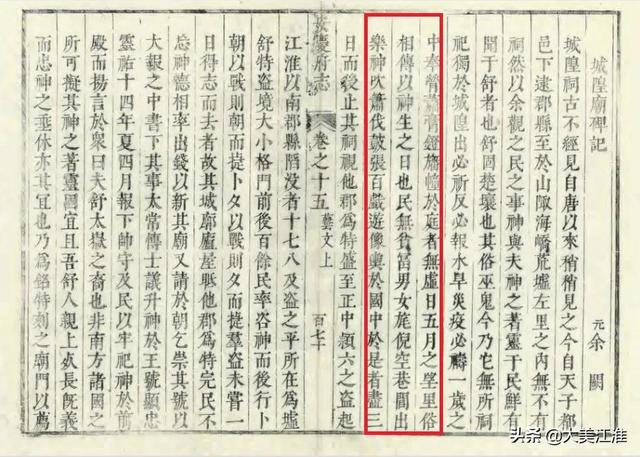 城隍廟碑記
元余闕
城隍祠古不經見自唐以來稍稍見之今自天子都
邑下逮郡縣至於山陬海嶠荒墟左里之內無不有
祠然以余觀之民之事神與夫神之著靈于民鮮有
聞于舒者也舒固楚壤也其俗巫鬼今乃它無所祠
祀獨於城隍出必祈反必報水旱災疫必禱一歲之
中奉嘗薦膏鐙旛幢於庭者無虛日五月之望里俗
相傳以神生之日也民無貧富男女旄倪空巷閭出
樂神吹簫伐鼓張百戲遊像輿於國中於是者盡三
安慶府志
卷之十五
藝文上
百七十
日而後止其祠視他郡為特盛至正中潁六之盜起
江淮以南郡縣陷没者十七八及盜之平所在為墟
舒特盜境大小格鬥前後百餘民率咨神而後行卜
朝以戰則朝而捷卜夕以戰則夕而捷羣盜未嘗一
日得志而去者故其城廓廬屋眡他郡為特完民不
忘神德相率出錢以新其廟又請於朝乞崇其號以
大艱之中書下其事太常博士議升神於王號顯忠
靈祐十四年夏四月報下帥守及民以牢祀神於前
殿而揚言於衆曰夫舒太嶽之裔也非南方諸國之
所可擬其神之著靈固宜且吾舒人親上長既義
而忠神之垂休亦其宜也乃為銘特刻之廟門以薦
头条 @大美江淮